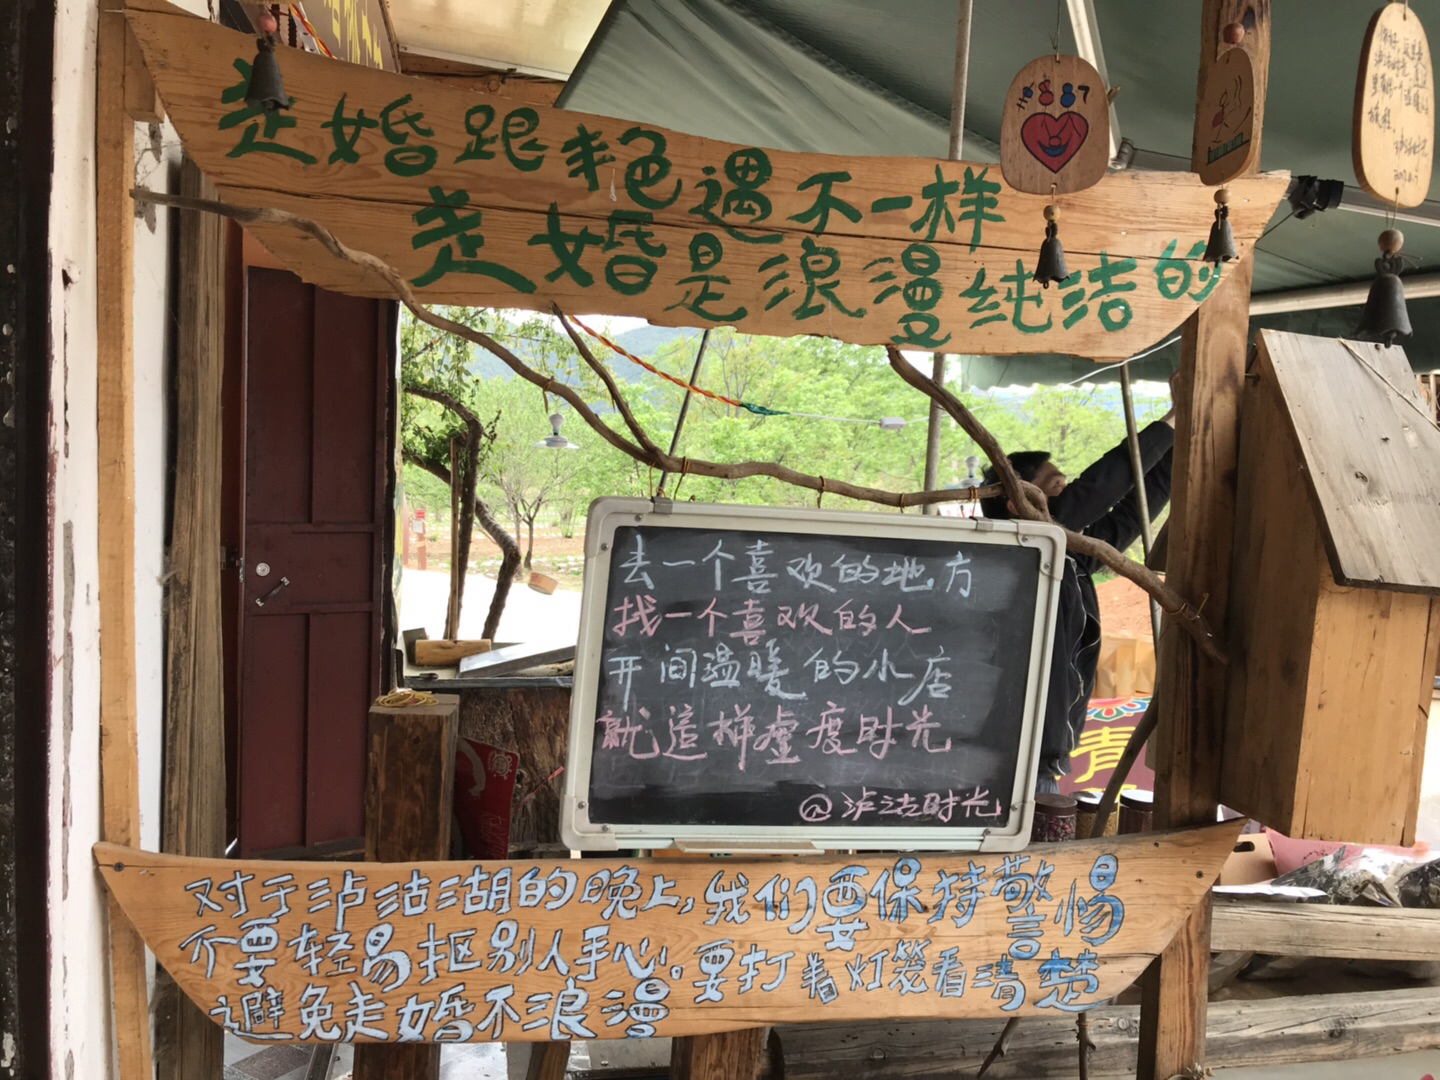 走婚跟艳遇不一样
走婚是浪漫纯洁的
去一个喜欢的地方
找一个喜欢的人
开间温暖的小店
就這样虚度时光
@泸沽时光
对于泸沽湖的晚上,我们要保持警惕
不要轻易抠别人手心。要打着灯笼看清楚
避免走婚不浪漫
青